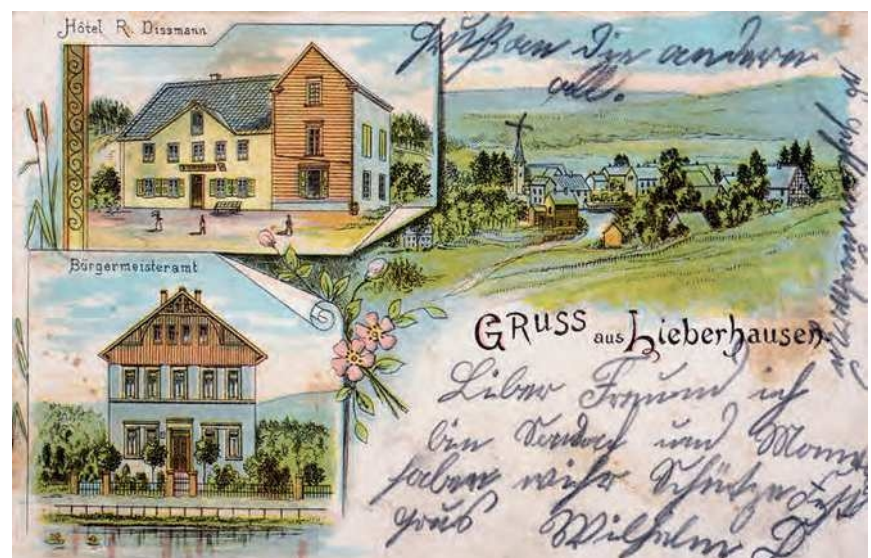 Hôtel R. Dissmann
Grüß an die andern
all.
Bürgermeisteramt
GRUSS aus Lieberhausen.
Liber Freund ich
bin und
haben wihr Schütze Fest
Wilhelm D